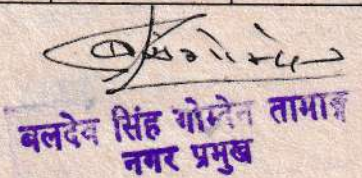 बलदेव सिंह गोम्देन तामाङ्ग
नगर प्रमुख